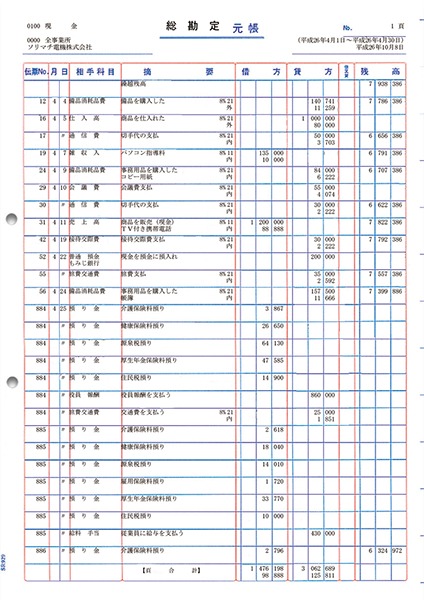 0100 現 金
総 勘 定 元 帳
No. 1 頁
0000 全事業所
(平成26年4月1日～平成26年4月30日)
ソリマチ電機株式会社
平成26年10月8日
伝票No. 月 日 相 手 科 目 摘 要 借 方 貸 方 残 高
繰越残高 7 938 386
12 4 4 備品消耗品費 備品を購入した 8%21 140 741 7 786 386
外 11 259
16 4 5 仕 入 高 商品を仕入れた 8%21 1 000 000
外 80 000
17 〃 通 信 費 切手代の支払 8%21 50 000 6 656 386
内 3 703
19 4 7 雑 収 入 パソコン指導料 8%11 135 000 6 791 386
内 10 000
24 4 9 備品消耗品費 事務用品を購入した 8%21 84 000 6 707 386
コピー用紙 内 6 222
29 4 10 会 議 費 会議費支払 8%21 55 000
内 4 074
30 〃 通 信 費 切手代の支払 8%21 30 000 6 622 386
内 2 222
31 4 11 売 上 高 商品を販売(現金) 8%11 1 200 000 7 822 386
TV付き携帯電話 内 88 888
42 4 19 接待交際費 接待交際費支払 8%21 30 000 7 792 386
内 2 222
52 4 22 普通 預金 現金を預金に預入れ 200 000
もみじ銀行
55 〃 旅費交通費 旅費支払 8%21 35 000 7 557 386
内 2 592
56 4 24 備品消耗品費 事務用品を購入した 8%21 157 500 7 399 886
帳簿 内 11 666
884 4 25 預 り 金 介護保険料預り 3 867
884 〃 預 り 金 健康保険料預り 26 650
884 〃 預 り 金 源泉税預り 64 130
884 〃 預 り 金 厚生年金保険料預り 47 585
884 〃 預 り 金 住民税預り 14 900
884 〃 役員 報酬 役員報酬を支払う 860 000
884 〃 旅費交通費 交通費を支払う 8%21 25 000
内 1 851
885 〃 預 り 金 介護保険料預り 2 618
885 〃 預 り 金 健康保険料預り 18 040
885 〃 預 り 金 源泉税預り 14 010
885 〃 預 り 金 雇用保険料預り 1 720
885 〃 預 り 金 厚生年金保険料預り 33 770
885 〃 預 り 金 住民税預り 10 000
885 〃 給料 手当 従業員に給与を支払う 430 000
886 〃 預 り 金 介護保険料預り 2 796 6 324 972
【頁 合 計】 1 476 198 3 062 689
98 888 125 811